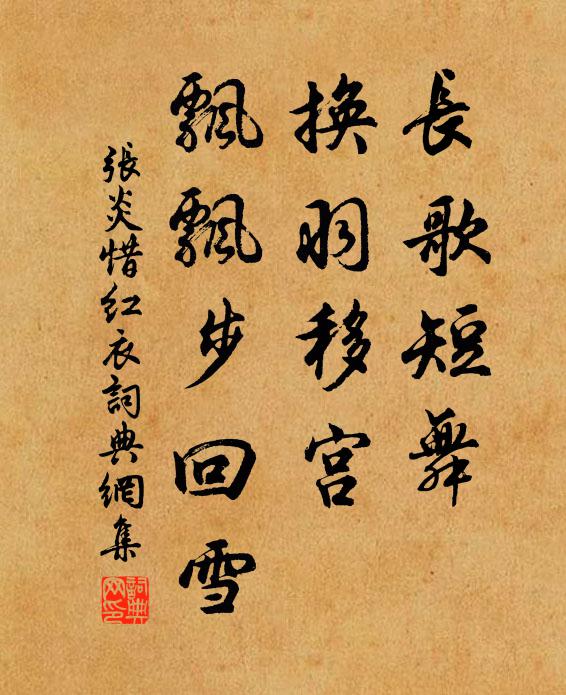 長歌短舞
換羽移宮
飄飄步回雪
張炎惜红衣詞典網集
詞典網印